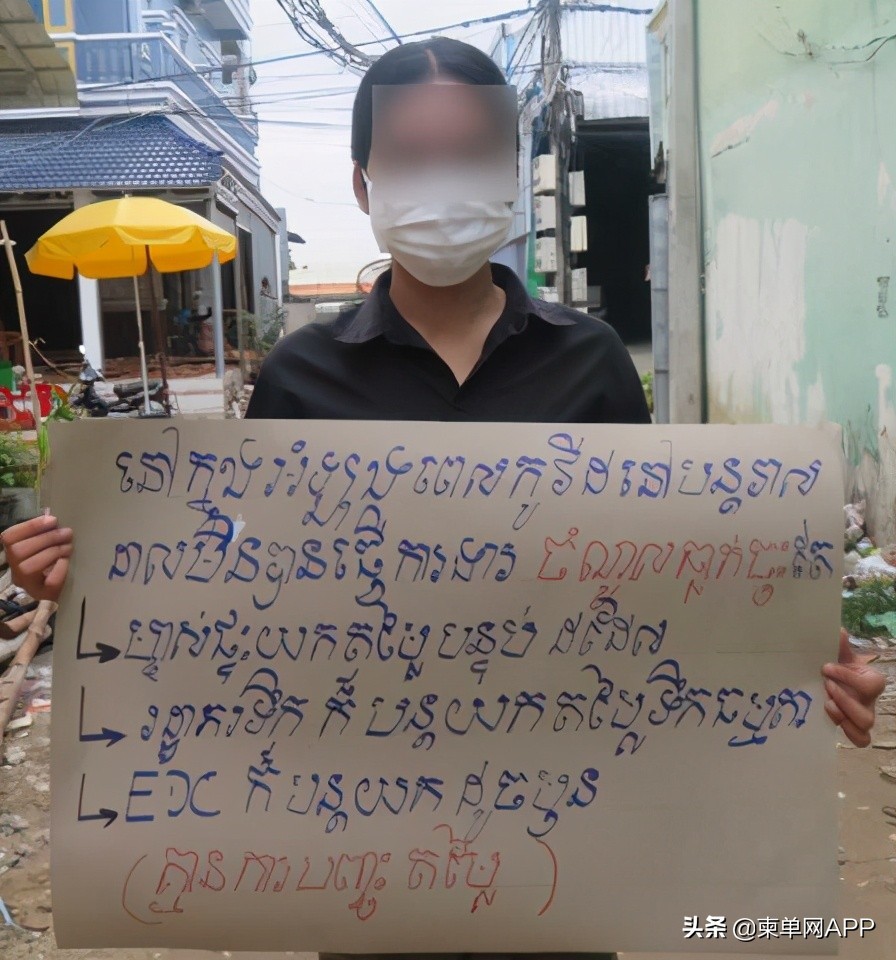 នៅក្នុងអំឡុងពេលកូវីដនៅបន្តរាល
ដាលមិនបានធ្វើការងារ ចំណូលធ្លាក់ចុះតែ
ម្ចាស់ផ្ទះយកតម្លៃបន្ទប់ ដដែល
រដ្ឋាករទឹក ក៏ បន្តយកតម្លៃទឹកធម្មតា
EDC ក៏ បន្តយក ដូចមុន
(គ្មានការបញ្ចុះតម្លៃ)
头条 @柬单网APP